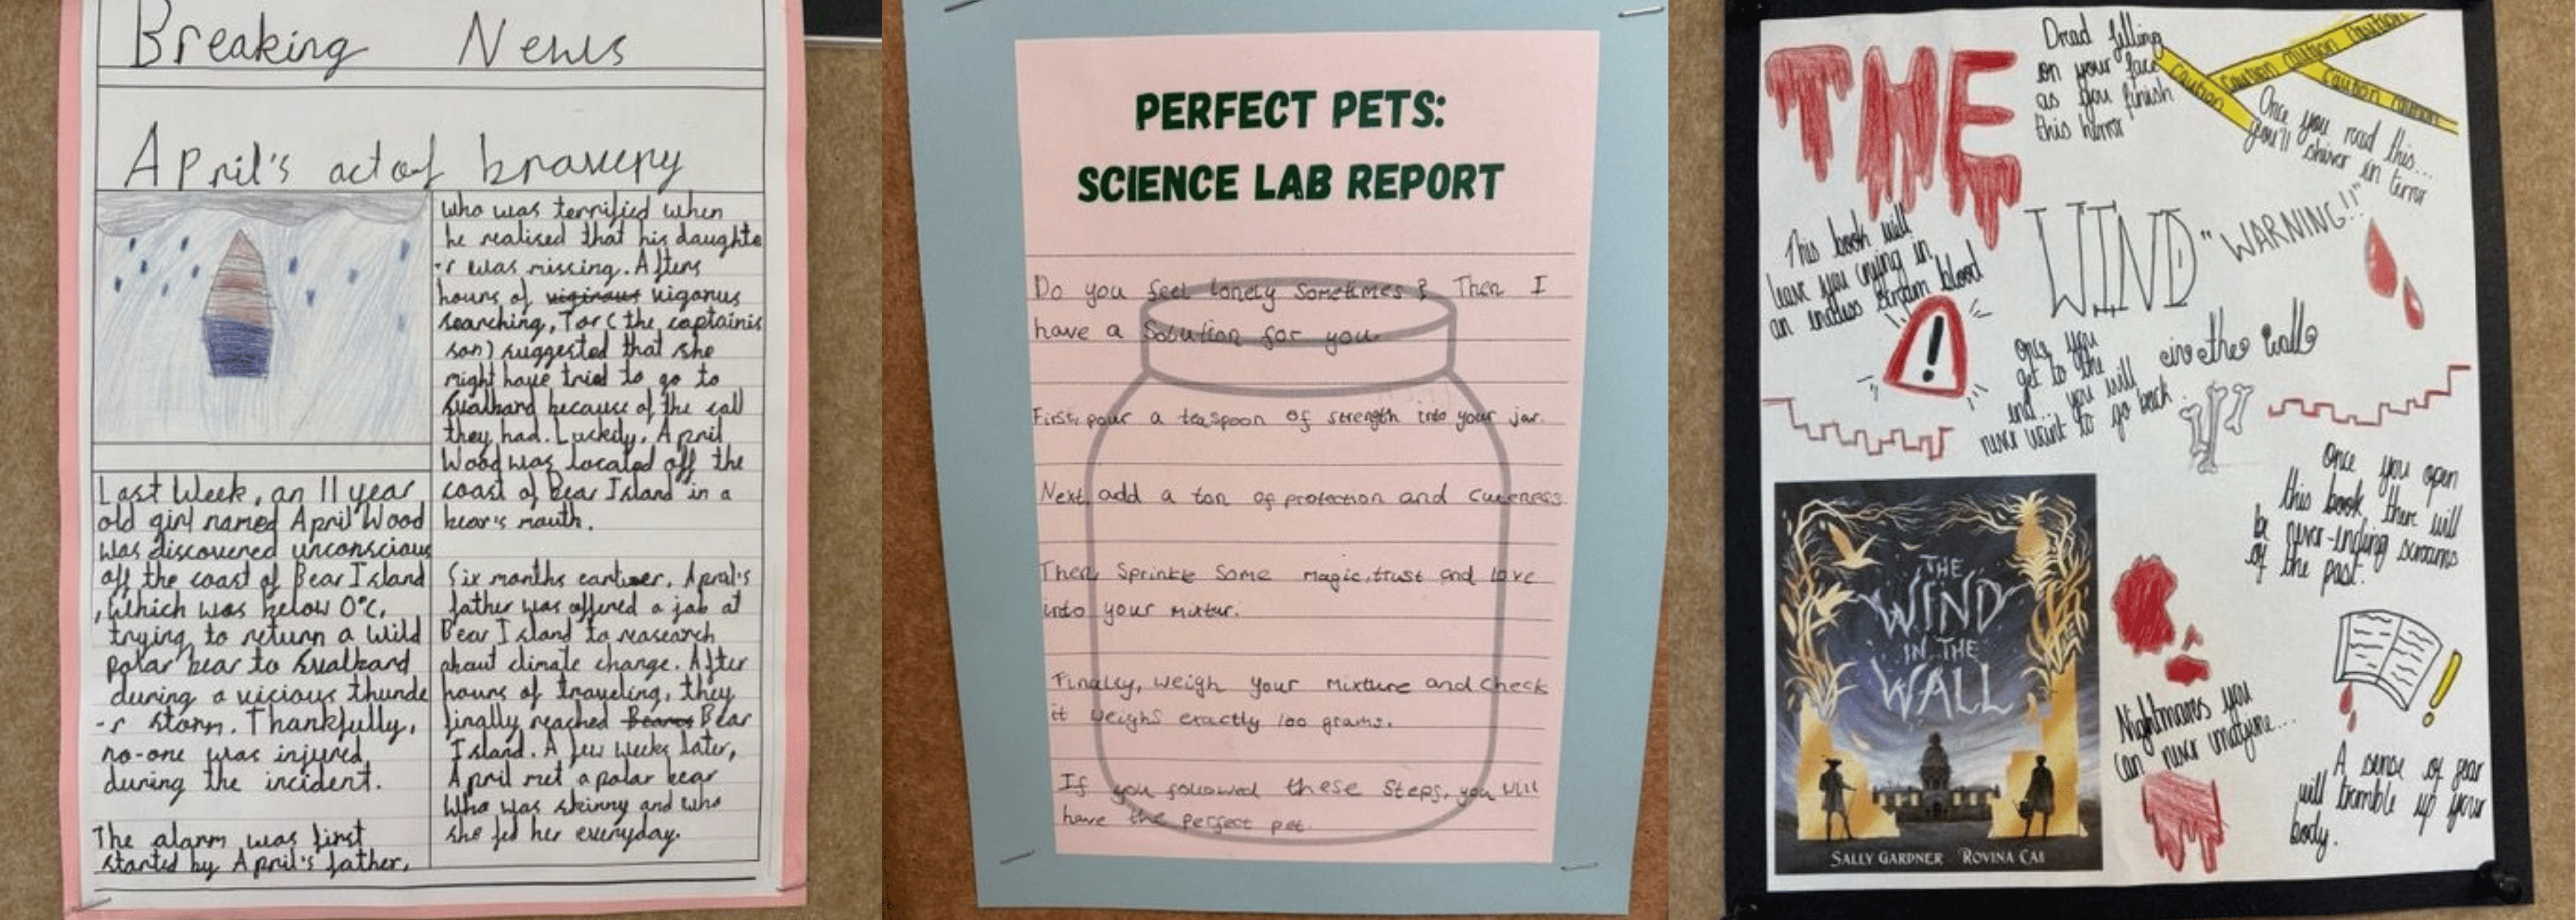 Breaking News
April's act of bravery
Last Week, an 11 year
old girl named April Wood
was discovered unconscious
off the coast of Bear Island
, Which was below 0°c,
trying to return a wild
polar bear to Svalbard
during a vicious thunde
-r storm. Thankfully,
no-one was injured
during the incident.
The alarm was first
started by April's father,
who was terrified when
he realised that his daughte
-r was missing. Afters
hours of vigirous vigorus
searching, Tor (the captain's
son) suggested that she
might have tried to go to
Svalbard because of the call
they had. Luckily, April
Wood was located off the
coast of Bear Island in a
bear's mouth.
Six months earlier, April's
father was offered a job at
Bear Island to research
about climate change. After
hours of traveling, they
finally reached Bear
Island. A few weeks later,
April met a polar bear
Who was skinny and who
she fed her everyday.
PERFECT PETS:
SCIENCE LAB REPORT
Do you feel lonely Sometimes? Then I
have a Solution for you.
First, pour a teaspoon of strength into your jar.
Next, add a ton of protection and Cuteness.
Then, Sprinkle Some magic, trust and love
into your mixtur.
Finally, weigh your Mixture and check
it weighs exactly 100 grams.
If you followed these Steps, you will
have the perfect pet.
THE
Dread filling
on your face
as you finish
this horror
Caution
Caution caution caution
Caution caution
Once you read this...
you'll shiver in terror
This book will
leave you crying in
an endless stream blood
WIND
"WARNING!!"
in the wall
Once you
get to the
end... you will
never want to go back
Once you open
this book, there will
be never-ending screams
of the past.
THE
WIND
IN THE
WALL
SALLY GARDNER ROVINA CAI
Nightmares you
can never imagine...
A sense of fear
will tremble up your
body.